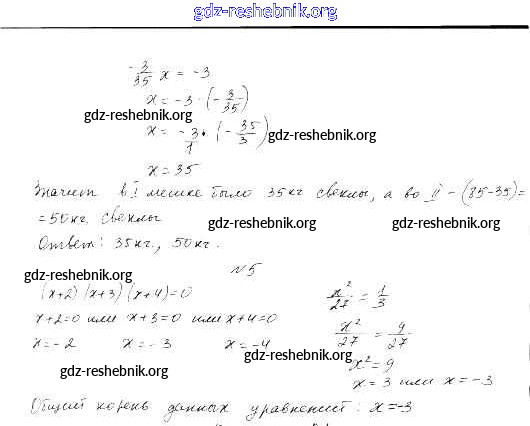 gdz-reshebnik.org
-3/35 x = -3
x = -3 · (-3/35)
gdz-reshebnik.org
x = -3/1 · (-35/3)
gdz-reshebnik.org
x = 35
Значит в I мешке было 35 кг свеклы, а во II - (85-35)=
= 50 кг свеклы
gdz-reshebnik.org
gdz-reshebnik.org
Ответ: 35 кг., 50 кг.
N 5
gdz-reshebnik.org
(x+2)(x+3)(x+4)=0
x+2=0 или x+3=0 или x+4=0
x=-2 x=-3 x=-4
x²/27 = 1/3
x²/27 = 9/27
gdz-reshebnik.org
x² = 9
gdz-reshebnik.org
x = 3 или x = -3
Общий корень данных уравнений: x=-3